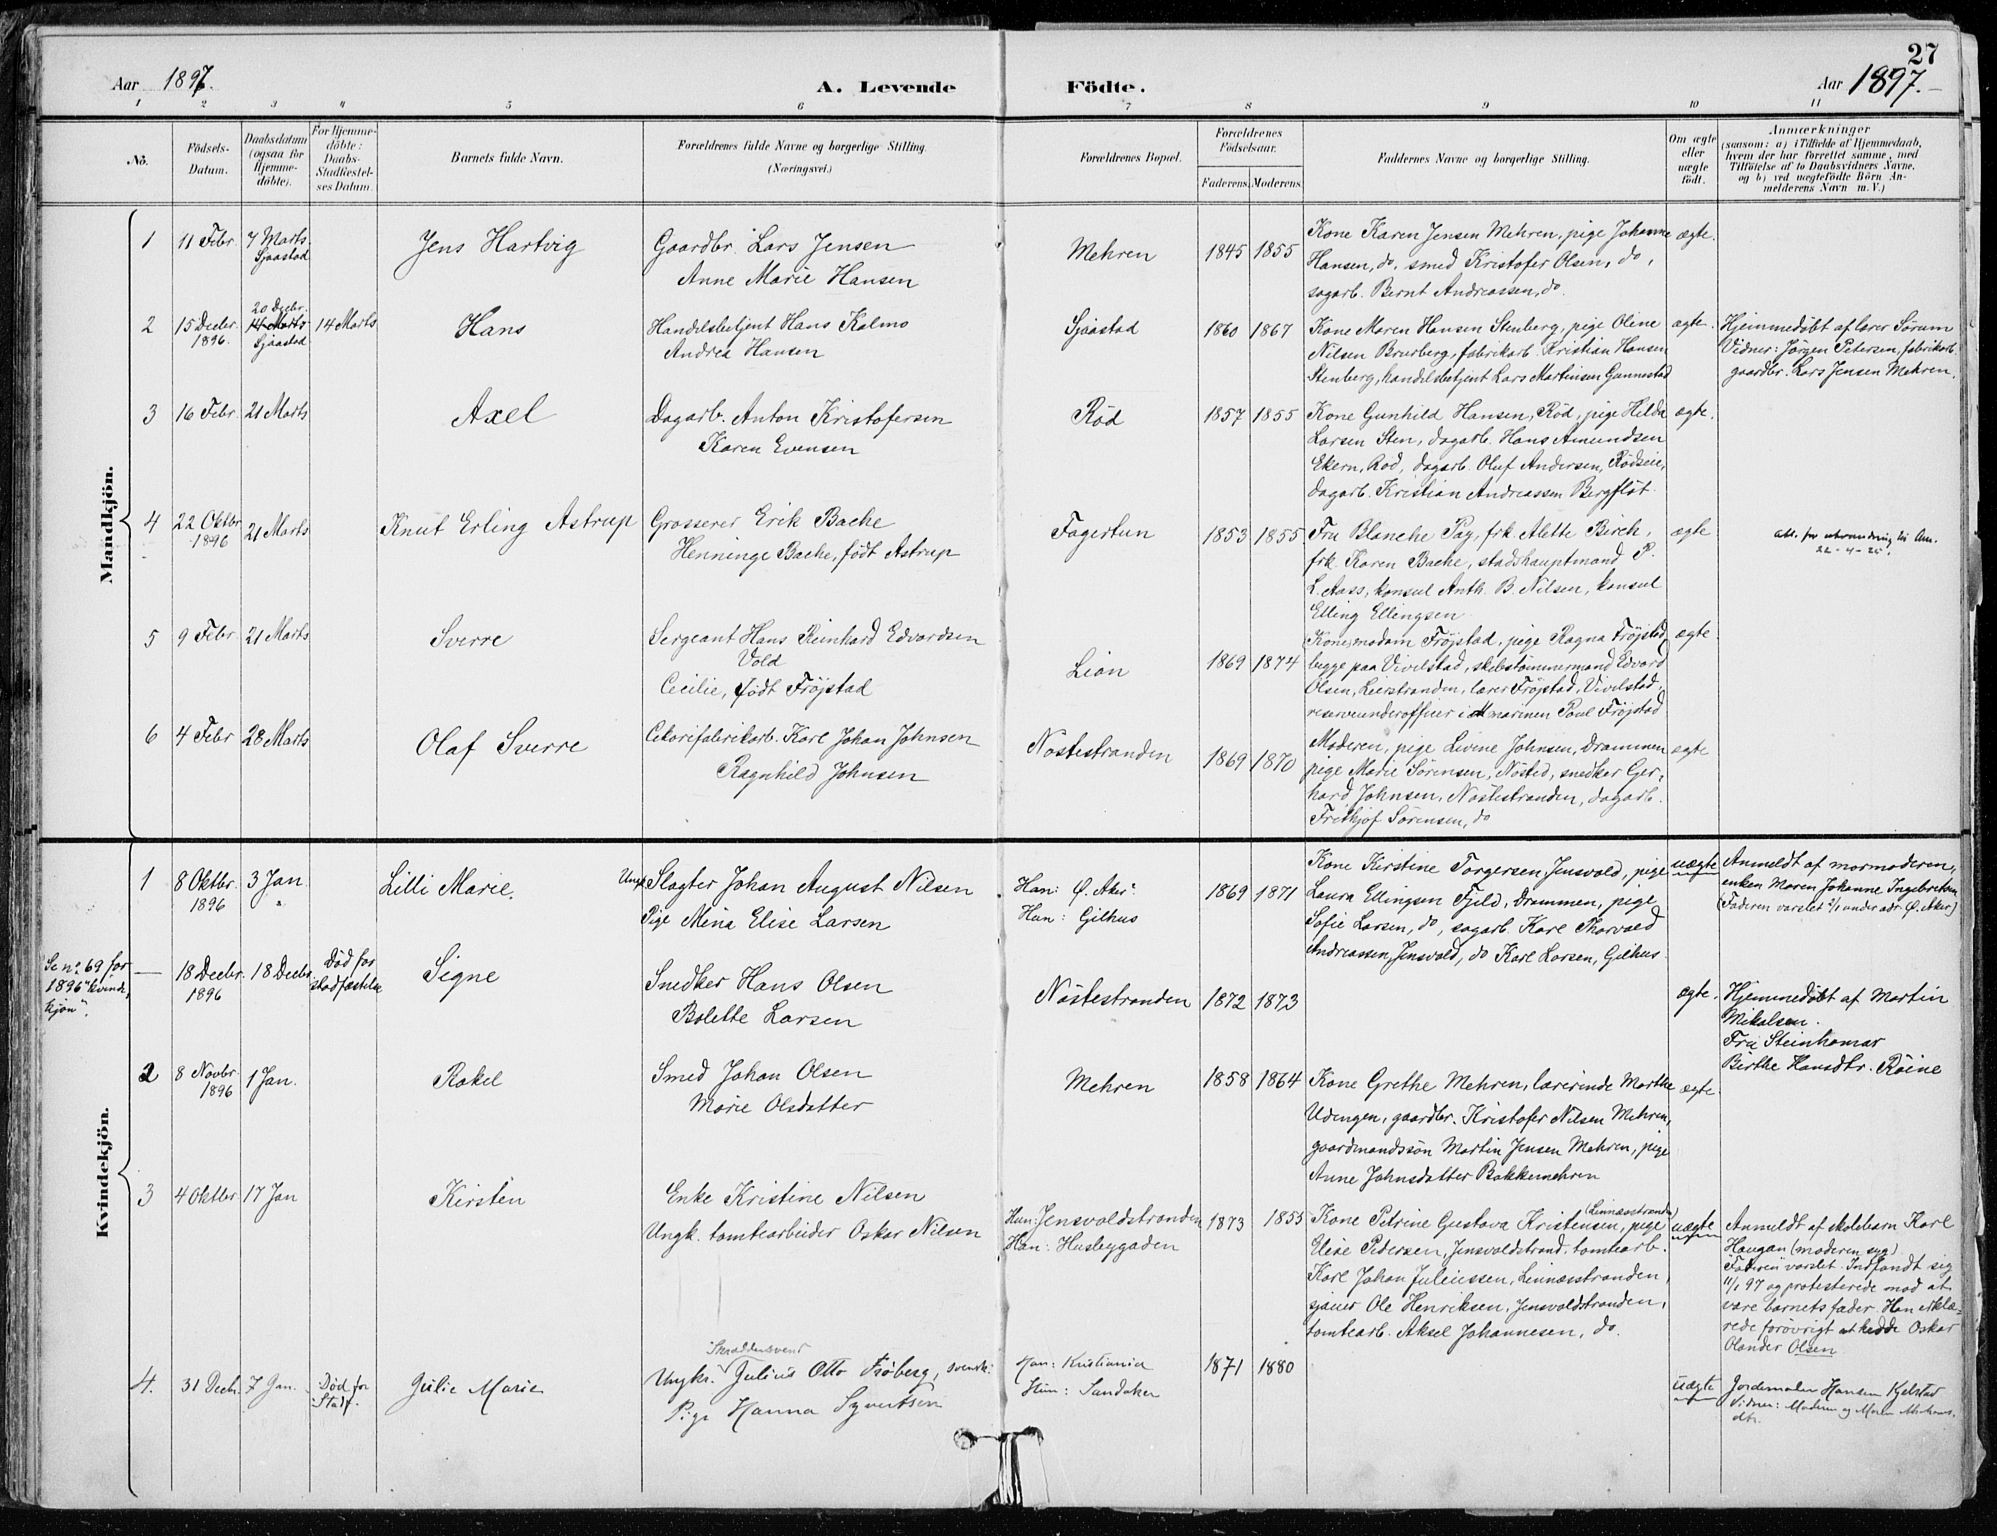 27
Aar 1897.
A. Levende Födte.
Aar 1897.
1 2 3 4 5 6 7 8 9 10 11
No.
Födsels-
Datum.
Daabsdatum
(ogsaa for
Hjemme-
döbte).
For Hjemme-
döbte:
Daabs-
Stadfæstel-
ses Datum.
Barnets fulde Navn.
Forældrenes fulde Navne og borgerlige Stilling.
(Næringsvei.)
Forældrenes Bopæl.
Forældrenes
Födselsaar.
Faderens. Moderens.
Faddernes Navne og borgerlige Stilling.
Om ægte
eller
uægte
födt.
Anmærkninger
(saasom: a) i Tilfælde af Hjemmedaab,
hvem der har forrettet samme, med
Tilföielse af to Daabsvidners Navne,
og b) ved uægtefödte Börn An-
melderens Navn m. V.)
Mandkjön.
1
11 Febr.
7 Marts
Sjaastad
Jens Hartvig
Gaardbr. Lars Jensen
Anne Marie Hansen
Mehren
1845 1855
Kone Karen Jensen Mehren, pige Johanne
Hansen, do, smed Kristofer Olsen, do,
sagarb. Bernt Andreassen, do.
ægte.
2
15 Decbr.
1896.
20 Decbr.
14 Marts
Sjaastad
14 Marts
Hans
Handelsbetjent Hans Kalmo
Andrea Hansen
Sjaastad
1860 1867
Kone Maren Hansen Stenberg, pige Oline
Nilsen Brurberg, fabrikarb. Kristian Hansen
Stenberg, handelsbetjent Lars Martinsen Gunnestad
ægte.
Hjemmedøbt af lærer Sørum
Vidner: Jørgen Petersen, fabrikarb.
gaardbr. Lars Jensen Mehren.
3
16 Febr.
21 Marts
Axel
Dagarb. Anton Kristofersen
Karen Evensen
Rød
1857 1855
Kone Gunhild Hansen, Rød, pige Hilda
Larsen Sten, dagarb. Hans Amundsen
Ekern, Rød, dagarb. Oluf Andersen, Rødseie,
dagarb. Kristian Andreassen Bergfløt.
ægte.
4
22 Oktbr.
1896
21 Marts
Knut Erling Astrup
Grosserer Erik Bache
Henninge Bache, født Astrup
Fagertun
1853 1855
Fru Blanche Pay, frk. Alette Birch,
frk. Karen Bache, stadshauptmand P.
L. Aass, konsul Anth. B. Nilsen, konsul
Elling Ellingsen
ægte
att. for utvandring til Am.
22-4-25.
5
9 Febr.
21 Marts
Sverre
Sergeant Hans Reinhard Edvardsen
Vold
Cecilie, født Frøjstad
Lian
1869 1874
Kone, madam Frøjstad, pige Ragna Frøjstad
begge paa Vivelstad, skibstømmermand Edvard
Olsen, Leerstranden, lærer Frøjstad, Vivelstad,
reserveunderofficer i marinen Poul Frøjstad
ægte
6
4 Febr
28 Marts
Olaf Sverre
Cikorifabrikarb. Karl Johan Johnsen
Ragnhild Johnsen
Nøstestranden
1869 1870
Moderen, pige Livine Johnsen, Drammen
pige Marie Sørensen, Nøsted, snedker Ger-
hard Johnsen, Nøstestranden, dagarb.
Fritkjof Sørensen, do
ægte
Kvindekjön.
1
8 Oktbr.
1896
3 Jan.
"
Lilli Marie.
Ungk. Slagter Johan August Nilsen
Pige Mina Elise Larsen
Han: Ø. Aker
Hun: Gilhus
1869 1871
Kone Kirstine Torgersen, Jensvold, pige
Laura Ellingsen Fjeld, Drammen, pige
Sofie Larsen, do, sagarb. Karl Thorvald
Andreassen, Jensvold, do Karl Larsen, Gilhus.
uægte
Anmeldt af mormoderen,
enken Maren Johanne Ingebretsen
(Faderen varslet 2/1 under adr. Ø. Aker)
Se no. 69 for
1896 "kvinde-
kjøn".
—
18 Decbr.
1896
18 Decbr.
Død før
stadfæstelse
Signe
Snedker Hans Olsen
Bolette Larsen
Nøstestranden
1872 1873
ægte.
Hjemmedøbt af Martin
Mikalsen.
Fra Steinhamar
Birthe Hansdtr. Røine
2
8 Novbr.
1896
1 Jan.
Rakel
Smed Johan Olsen
Marie Olsdatter
Mehren
1858 1864
Kone Grethe Mehren, lærerinde Marthe
Udengen, gaardbr. Kristofer Nilsen Mehren,
gaardmandssøn Martin Jensen Mehren, pige
Anne Johnsdatter Bakkemehren
ægte.
3
4 Oktbr
17 Jan
Kirsten
Enke Kristine Nilsen
Ungk. tomtearbeider Oskar Nilsen
Hun: Jensvoldstranden
Han: Husbygaden
1873 1855
(Linnæsstranden)
Kone Petrine Gustava Kristensen, pige
Elise Pedersen, Jensvoldstrand. tomtearb.
Karl Johan Juliussen, Linnæsstranden,
sjauer Ole Henriksen, Jensvoldstranden,
tomtearb. Aksel Johannesen, do.
uægte
Anmeldt af skolebarn Karl
Haugan (moderen syg)
"Faderen" varslet. Indfandt sig
11/1 97 og protesterede mod at
være barnets fader. Han erklæ-
rede forøvrigt at hedde Oskar
Olander Olsen
4.
31 Decbr.
7 Jan.
Død før
Stadf.
Julie Marie
Skræddersvend
Ungkr. Julius Otto Frøberg, svensk.
Pige Hanna Syvertsen
Han: Kristiania
Hun: Sandaker
1871 1880
uægte
Jordemoder Hansen Kjelstad
Vidner: Moderen og Maren
dtr.